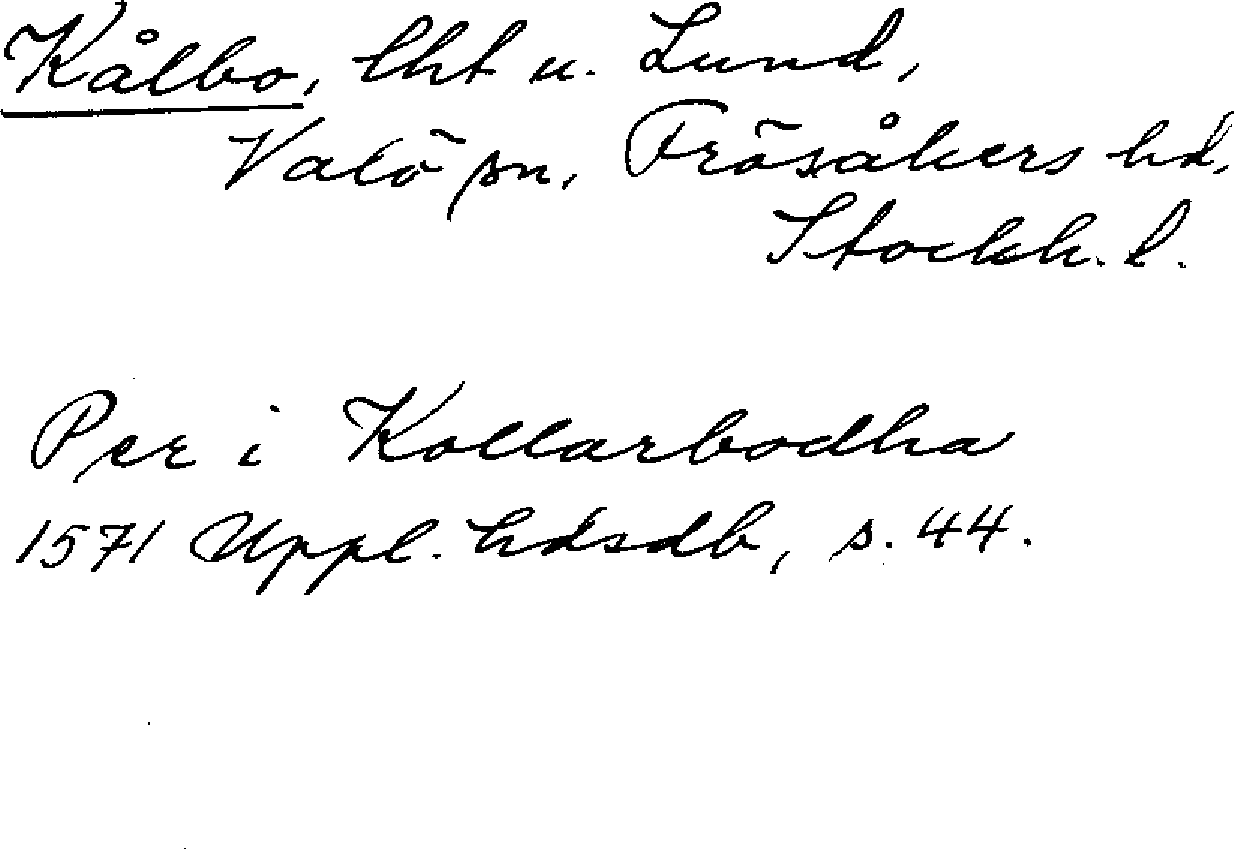 Kålbo, lht u. Lund,
Valö sn, Frösåkers hd,
Stockh. l.
Per i Kollarbodha
1571 Uppl. hdsdb, s. 44.